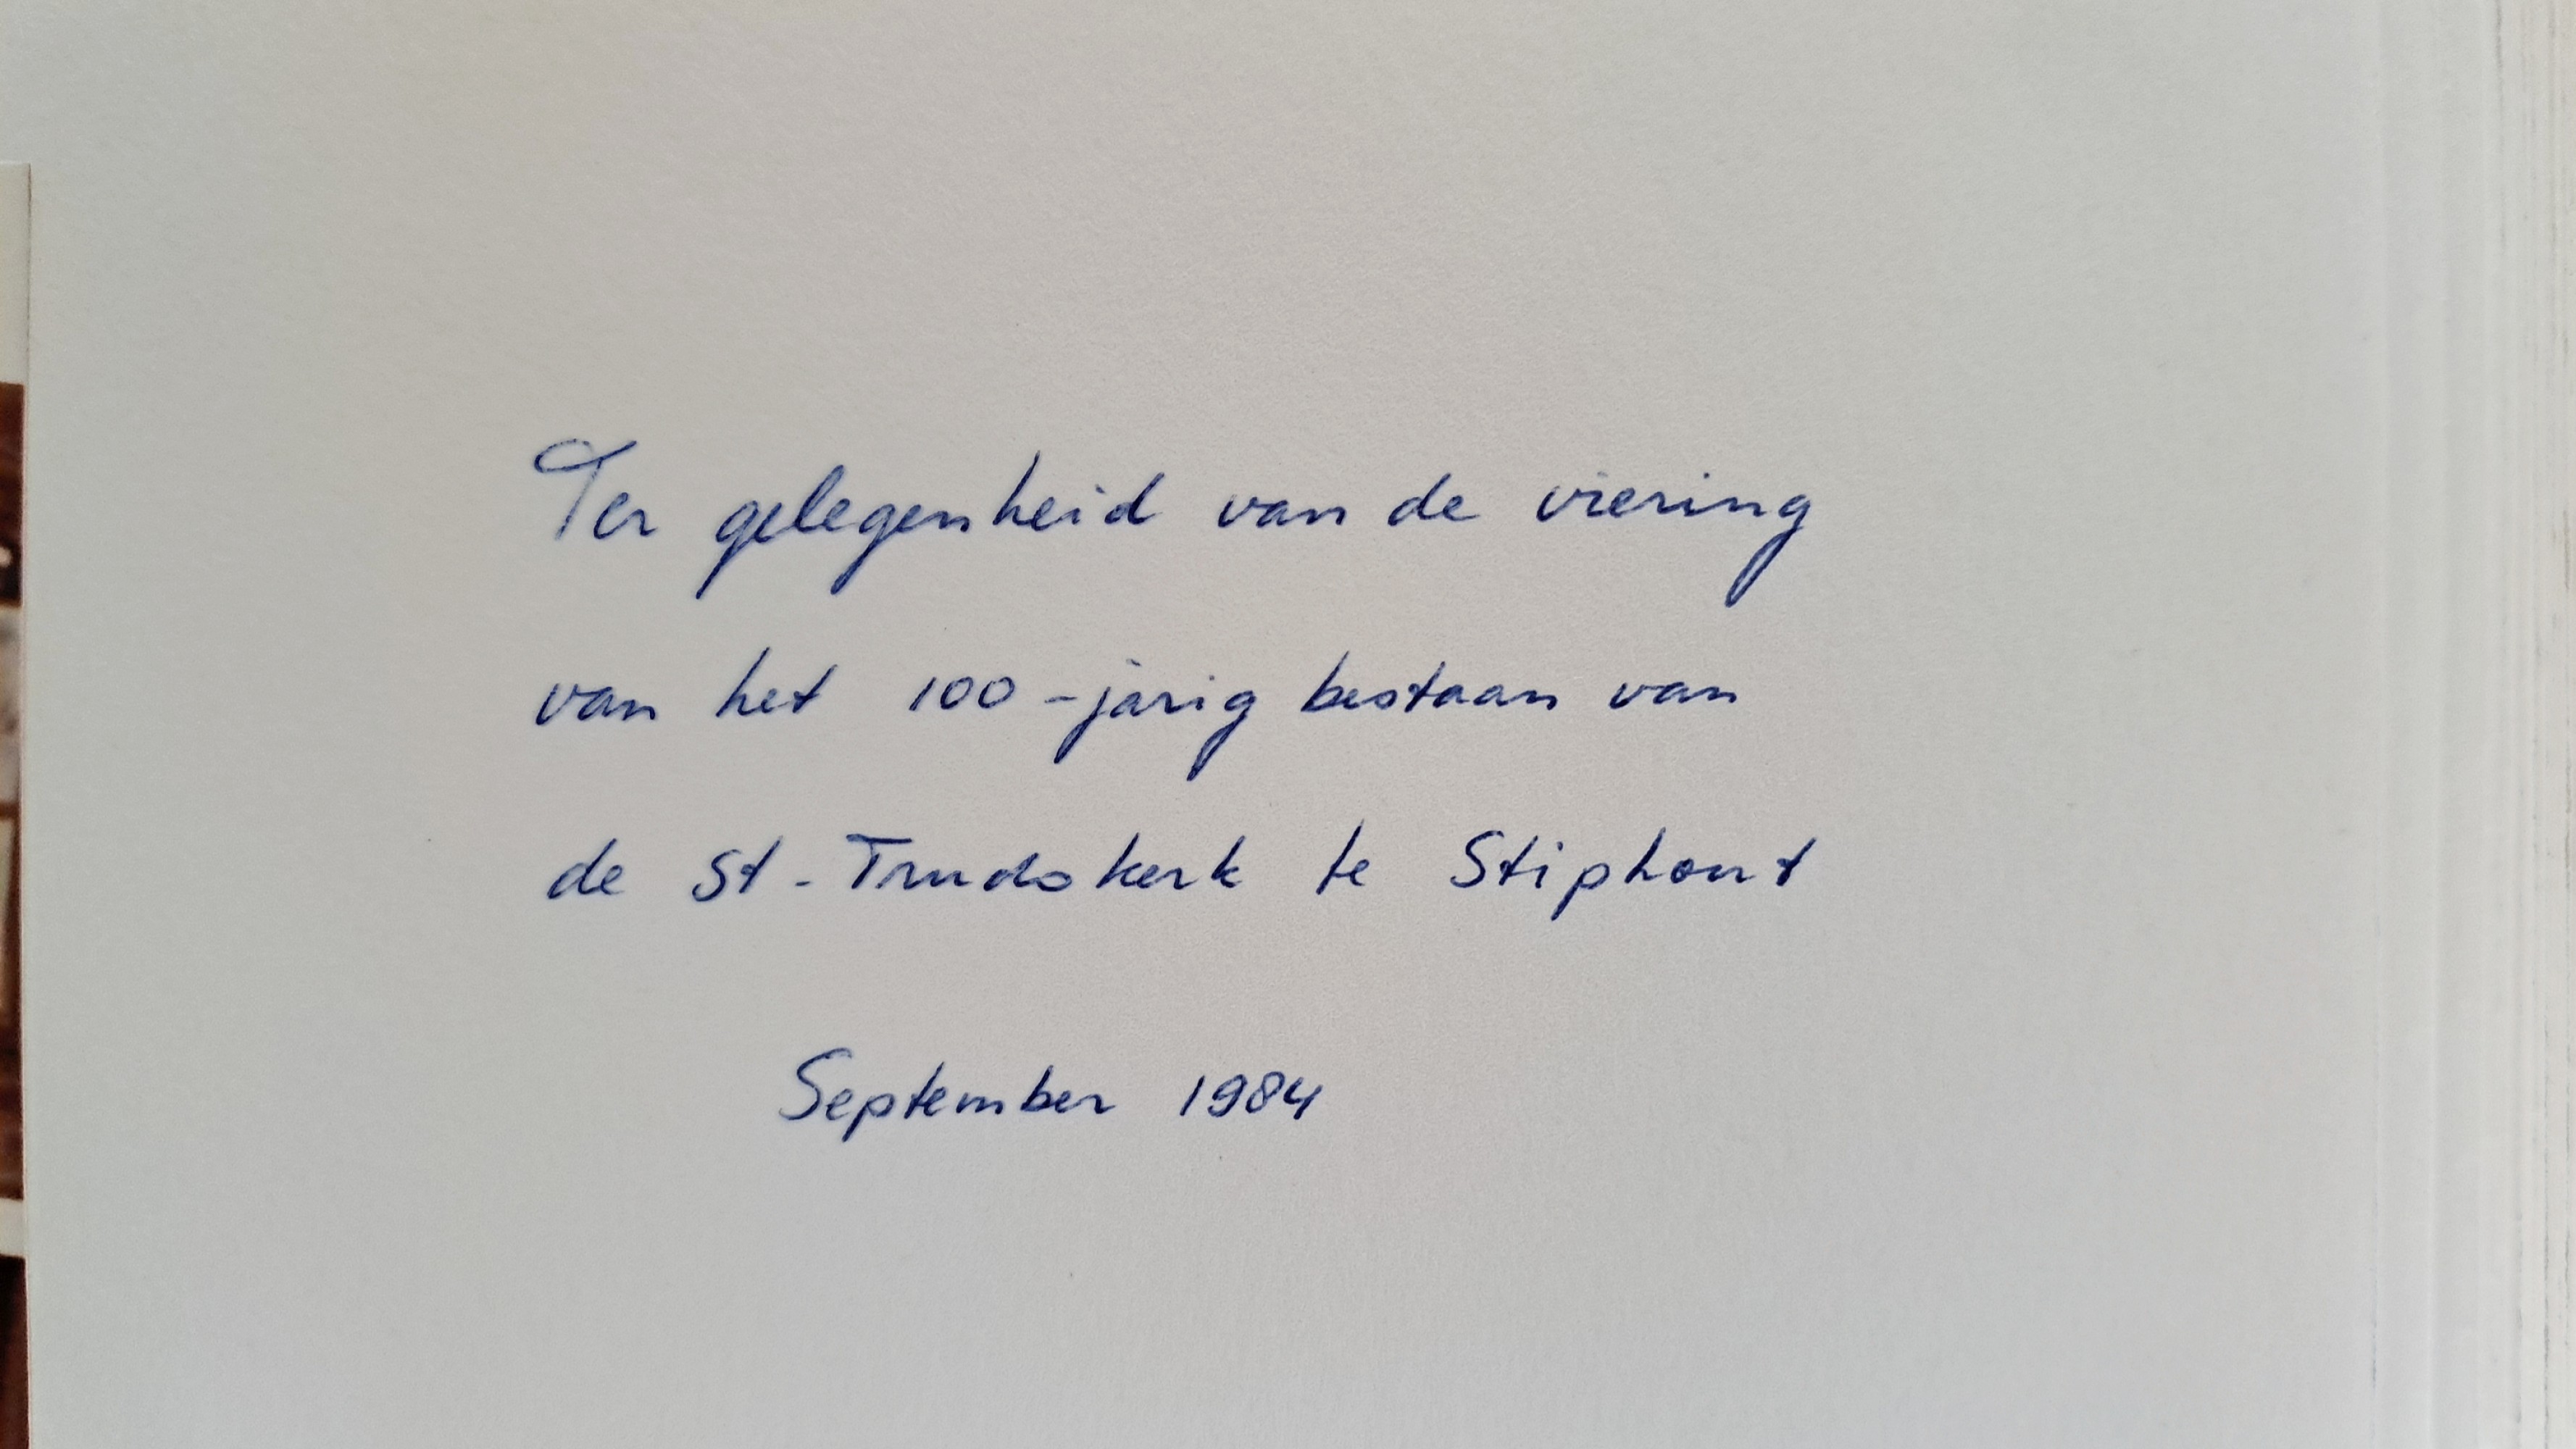 Ter gelegenheid van de viering
van het 100-jarig bestaan van
de St.-Trudokerk te Stiphout
September 1984